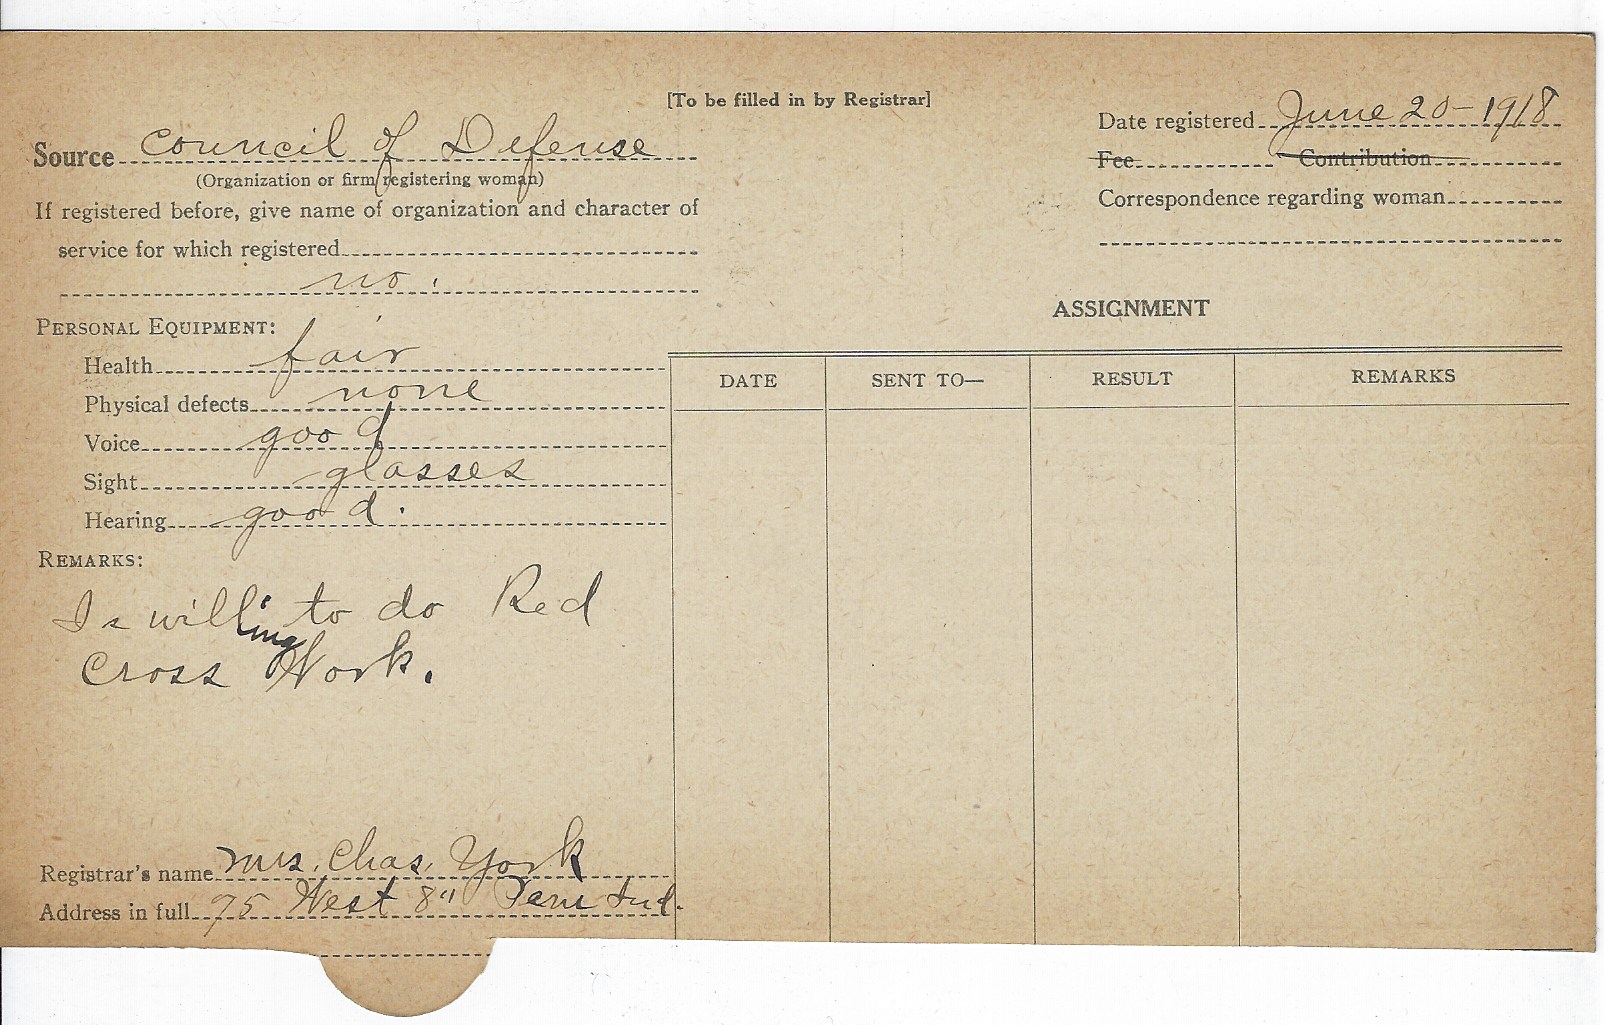 [To be filled in by Registrar]
Source Council of Defense
(Organization or firm registering woman)
If registered before, give name of organization and character of
service for which registered
no.
PERSONAL EQUIPMENT:
Health fair
Physical defects none
Voice good
Sight glasses
Hearing good.
REMARKS:
Is willing to do Red
Cross Work.
Registrar's name Mrs. Chas. York
Address in full 75 West 8" Peru Ind.
Date registered June 20-1918
Fee Contribution
Correspondence regarding woman
ASSIGNMENT
DATE SENT TO— RESULT REMARKS